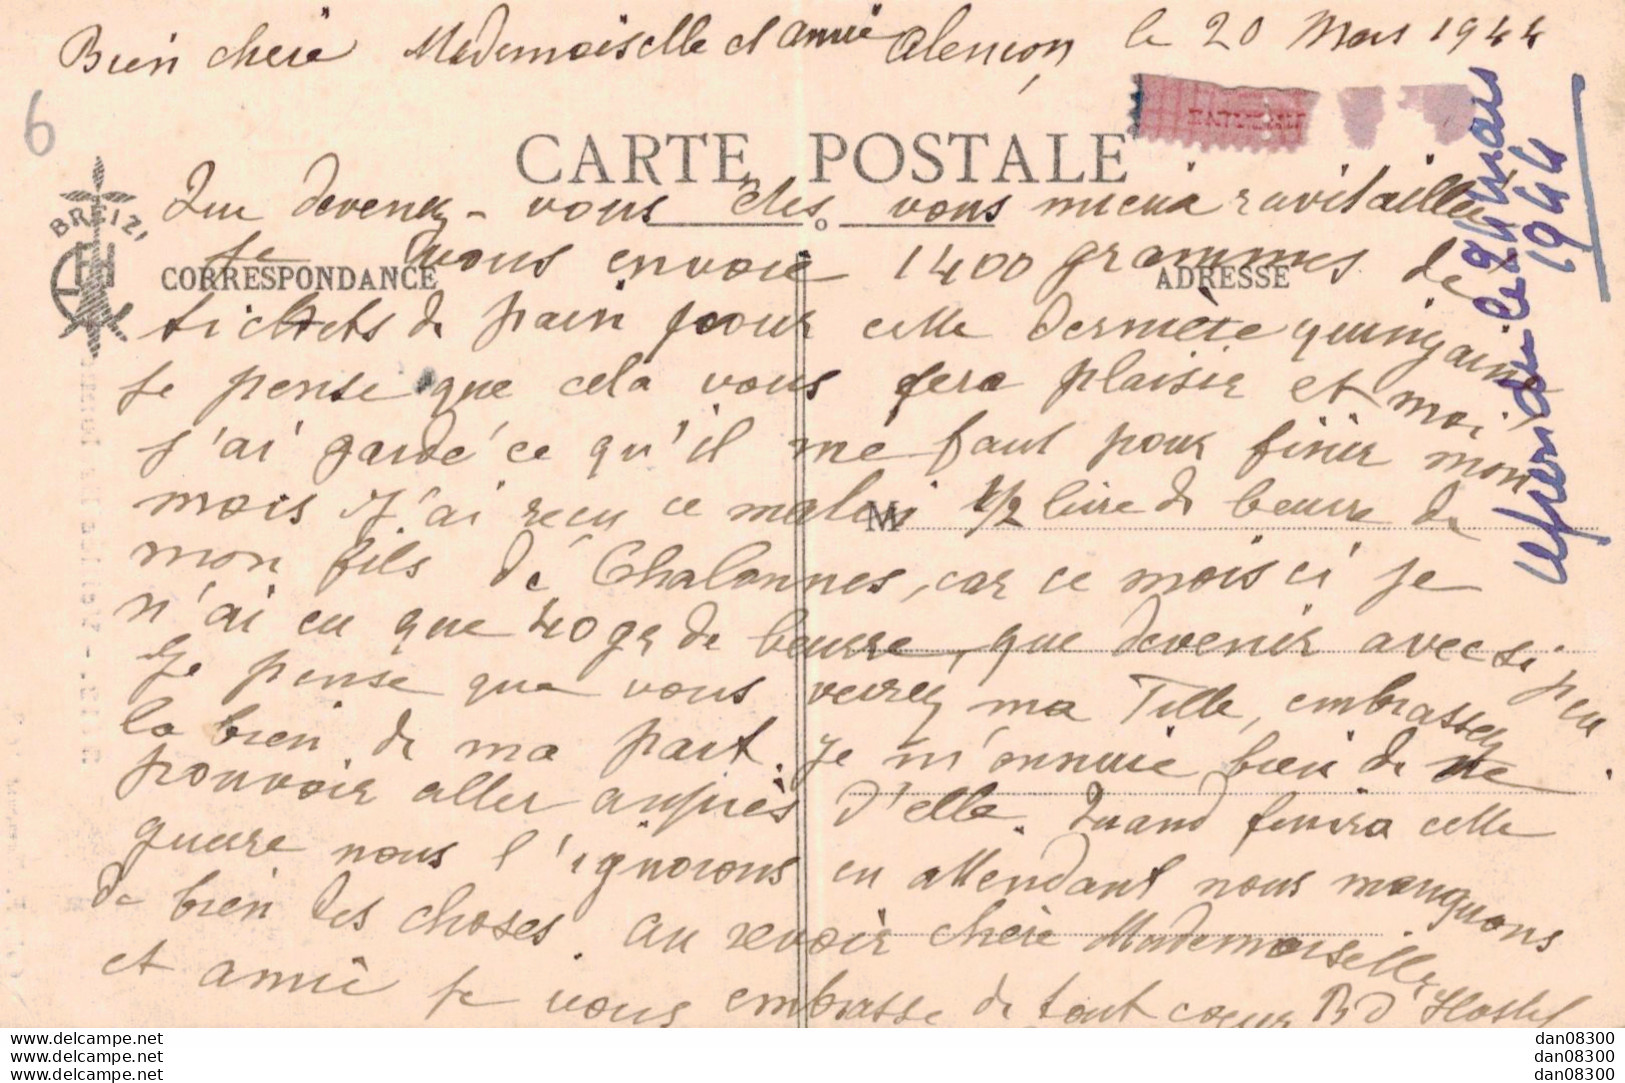 Bien chère Mademoiselle et amie Alençon le 20 Mars 1944
6
CARTE POSTALE
BREIZ IZEL
Que devenez-vous êtes vous mieux ravitaillée
CORRESPONDANCE
ADRESSE
je vous envoie 1400 grammes de
tickets de pain pour cette dernière quinzaine
je pense que cela vous fera plaisir et moi
j'ai gardé ce qu'il me faut pour finir mon
mois J'ai reçu ce matin 1/2 livre de beurre de
M
mon fils de Chalonnes, car ce mois ci je
n'ai eu que 40 gr de beurre, que devenir avec si peu
Je pense que vous verrez ma Fille, embrassez
la bien de ma part. Je m'ennuie bien de ne
pouvoir aller auprès d'elle. Quand finira cette
guerre nous l'ignorons en attendant nous manquons
de bien des choses. au revoir chère Mademoiselle
et amie je vous embrasse de tout coeur
répondu le 24 mars
1944
dan08300
dan08300
dan08300
dan08300
dan08300
dan08300